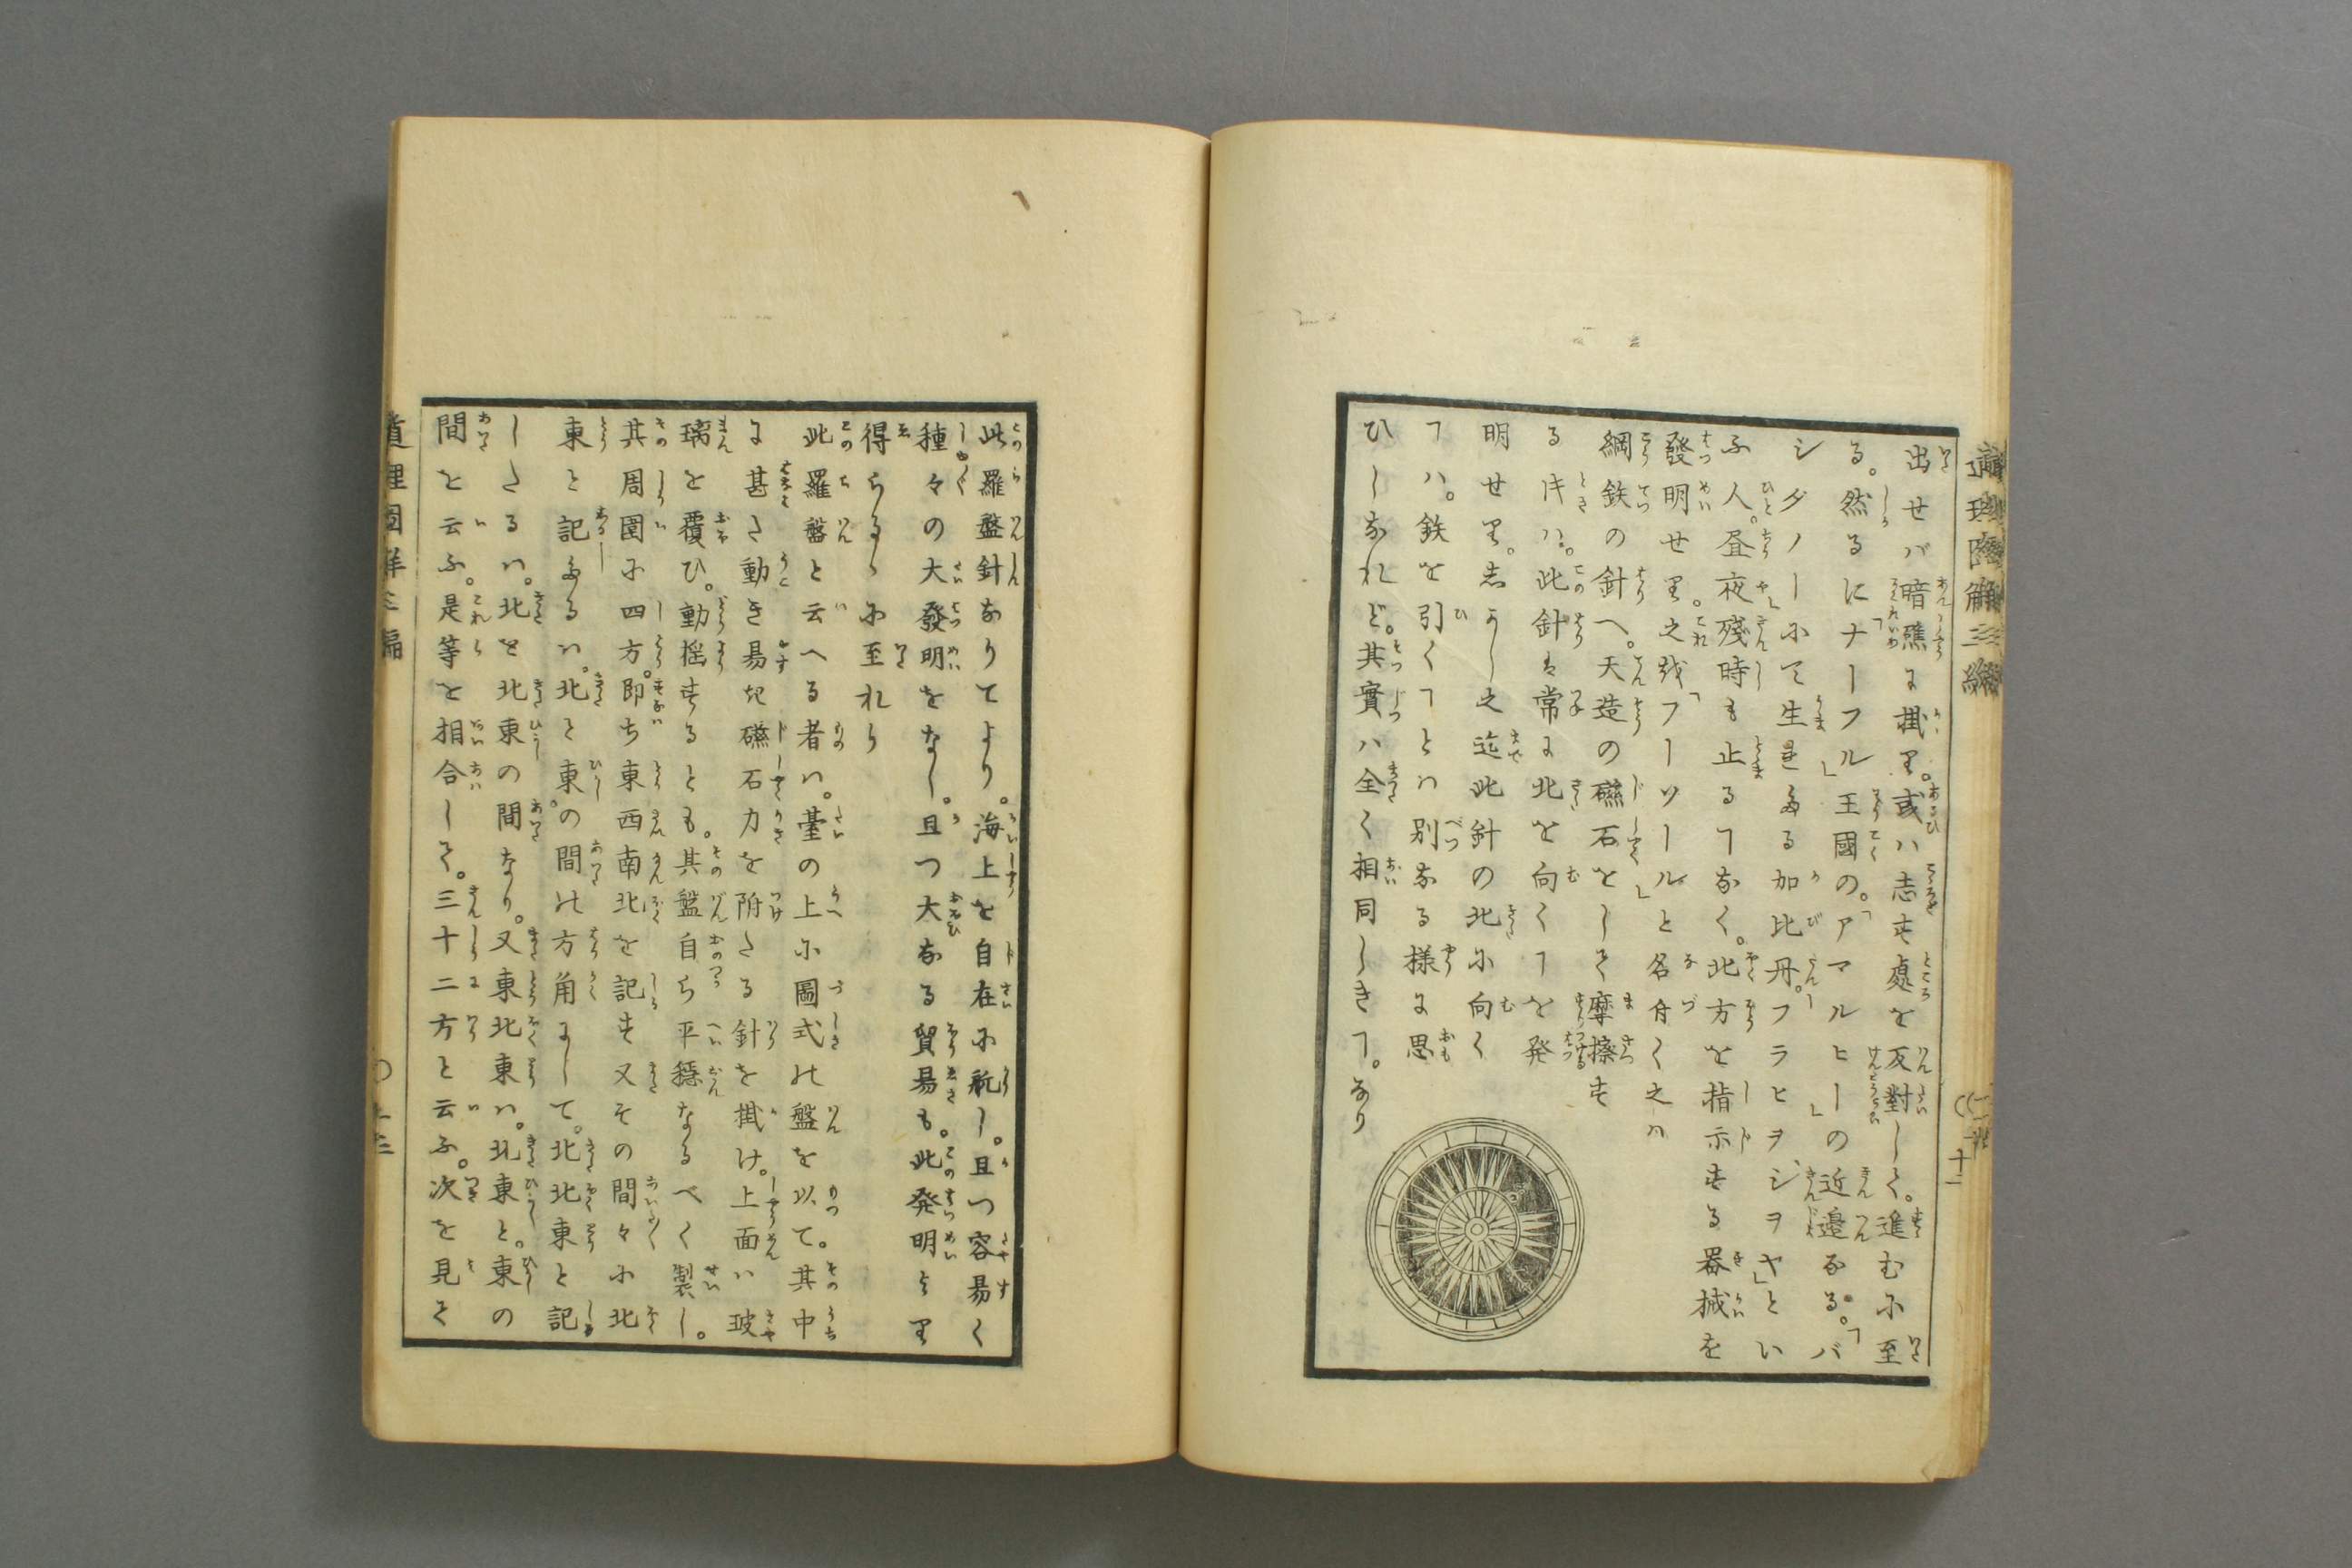 出せバ暗礁に掛り。或ハ志す處を反對して。進むに至
る。然るに「ナーフル」王國の。「アマルヒー」の近邊なる。「バ
シダノーにて生れたる加比丹。フラヒヲ、ジヲヤ」とい
ふ人。昼夜殘時も止るヿなく。北方を指示する器械を
發明せり。之を「フーソール」と名付く之ハ
綱鉄の針へ。天造の磁石をして摩擦す
る𪜈ハ。此針は常に北を向くヿを発
明せり。志かし之迄此針の北に向く
ヿハ。鉄を引くヿとハ別なる様に思
ひしなれど。其實ハ全く相同しきヿ。なり
此羅盤針ありてより。海上を自在に航し。且つ容易く
種々の大發明をなし。且つ大なる貿易も。此発明より
得らるゝに至れり
此羅盤と云へる者ハ。臺の上に圖式の盤を以て。其中
に甚た動き易き磁石力を附たる針を掛け。上面ハ玻
璃を覆ひ。動揺するとも。其盤自ら平穏なるべく製し。
其周圍に四方。即ち東西南北を記す又その間々に北
東と記あるハ。北と東の間の方角にして。北北東と記
したるハ。北と北東の間なり。又東北東ハ。北東と。東の
間を云ふ。是等を相合して。三十二方と云ふ。次を見て
道理圖解三編